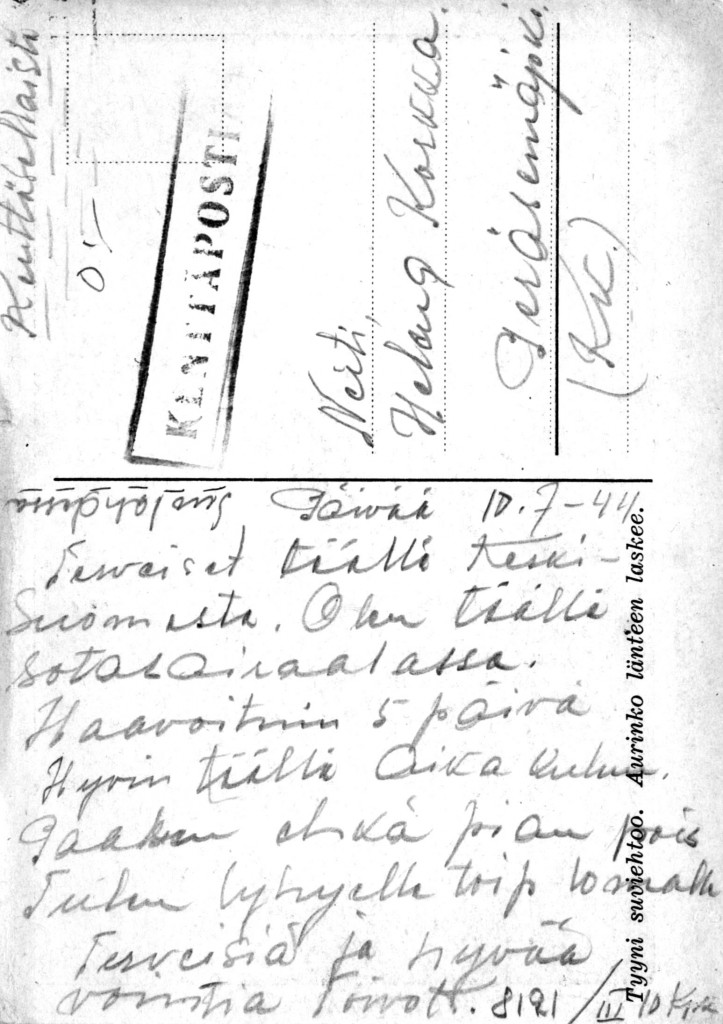 Kenttäsellaista
0:-
KENTTÄPOSTIA
Neiti,
Helena Korkka.
Peräseinäjoki.
(Kk.)
Suolahdessa Päivää 10.7-44.
Terveiset täältä Keski-
Suomesta. Olen täällä
sotasairaalassa.
Haavoituin 5 päivä
Hyvin täällä aika kuluu.
Pääsen ehkä pian pois
Tulen lyhyelle toip lomalle
Terveisiä ja hyvää
vointia Toivott. 8121/III 10 Kpk
Tyyni suviehtoo. Aurinko länteen laskee.